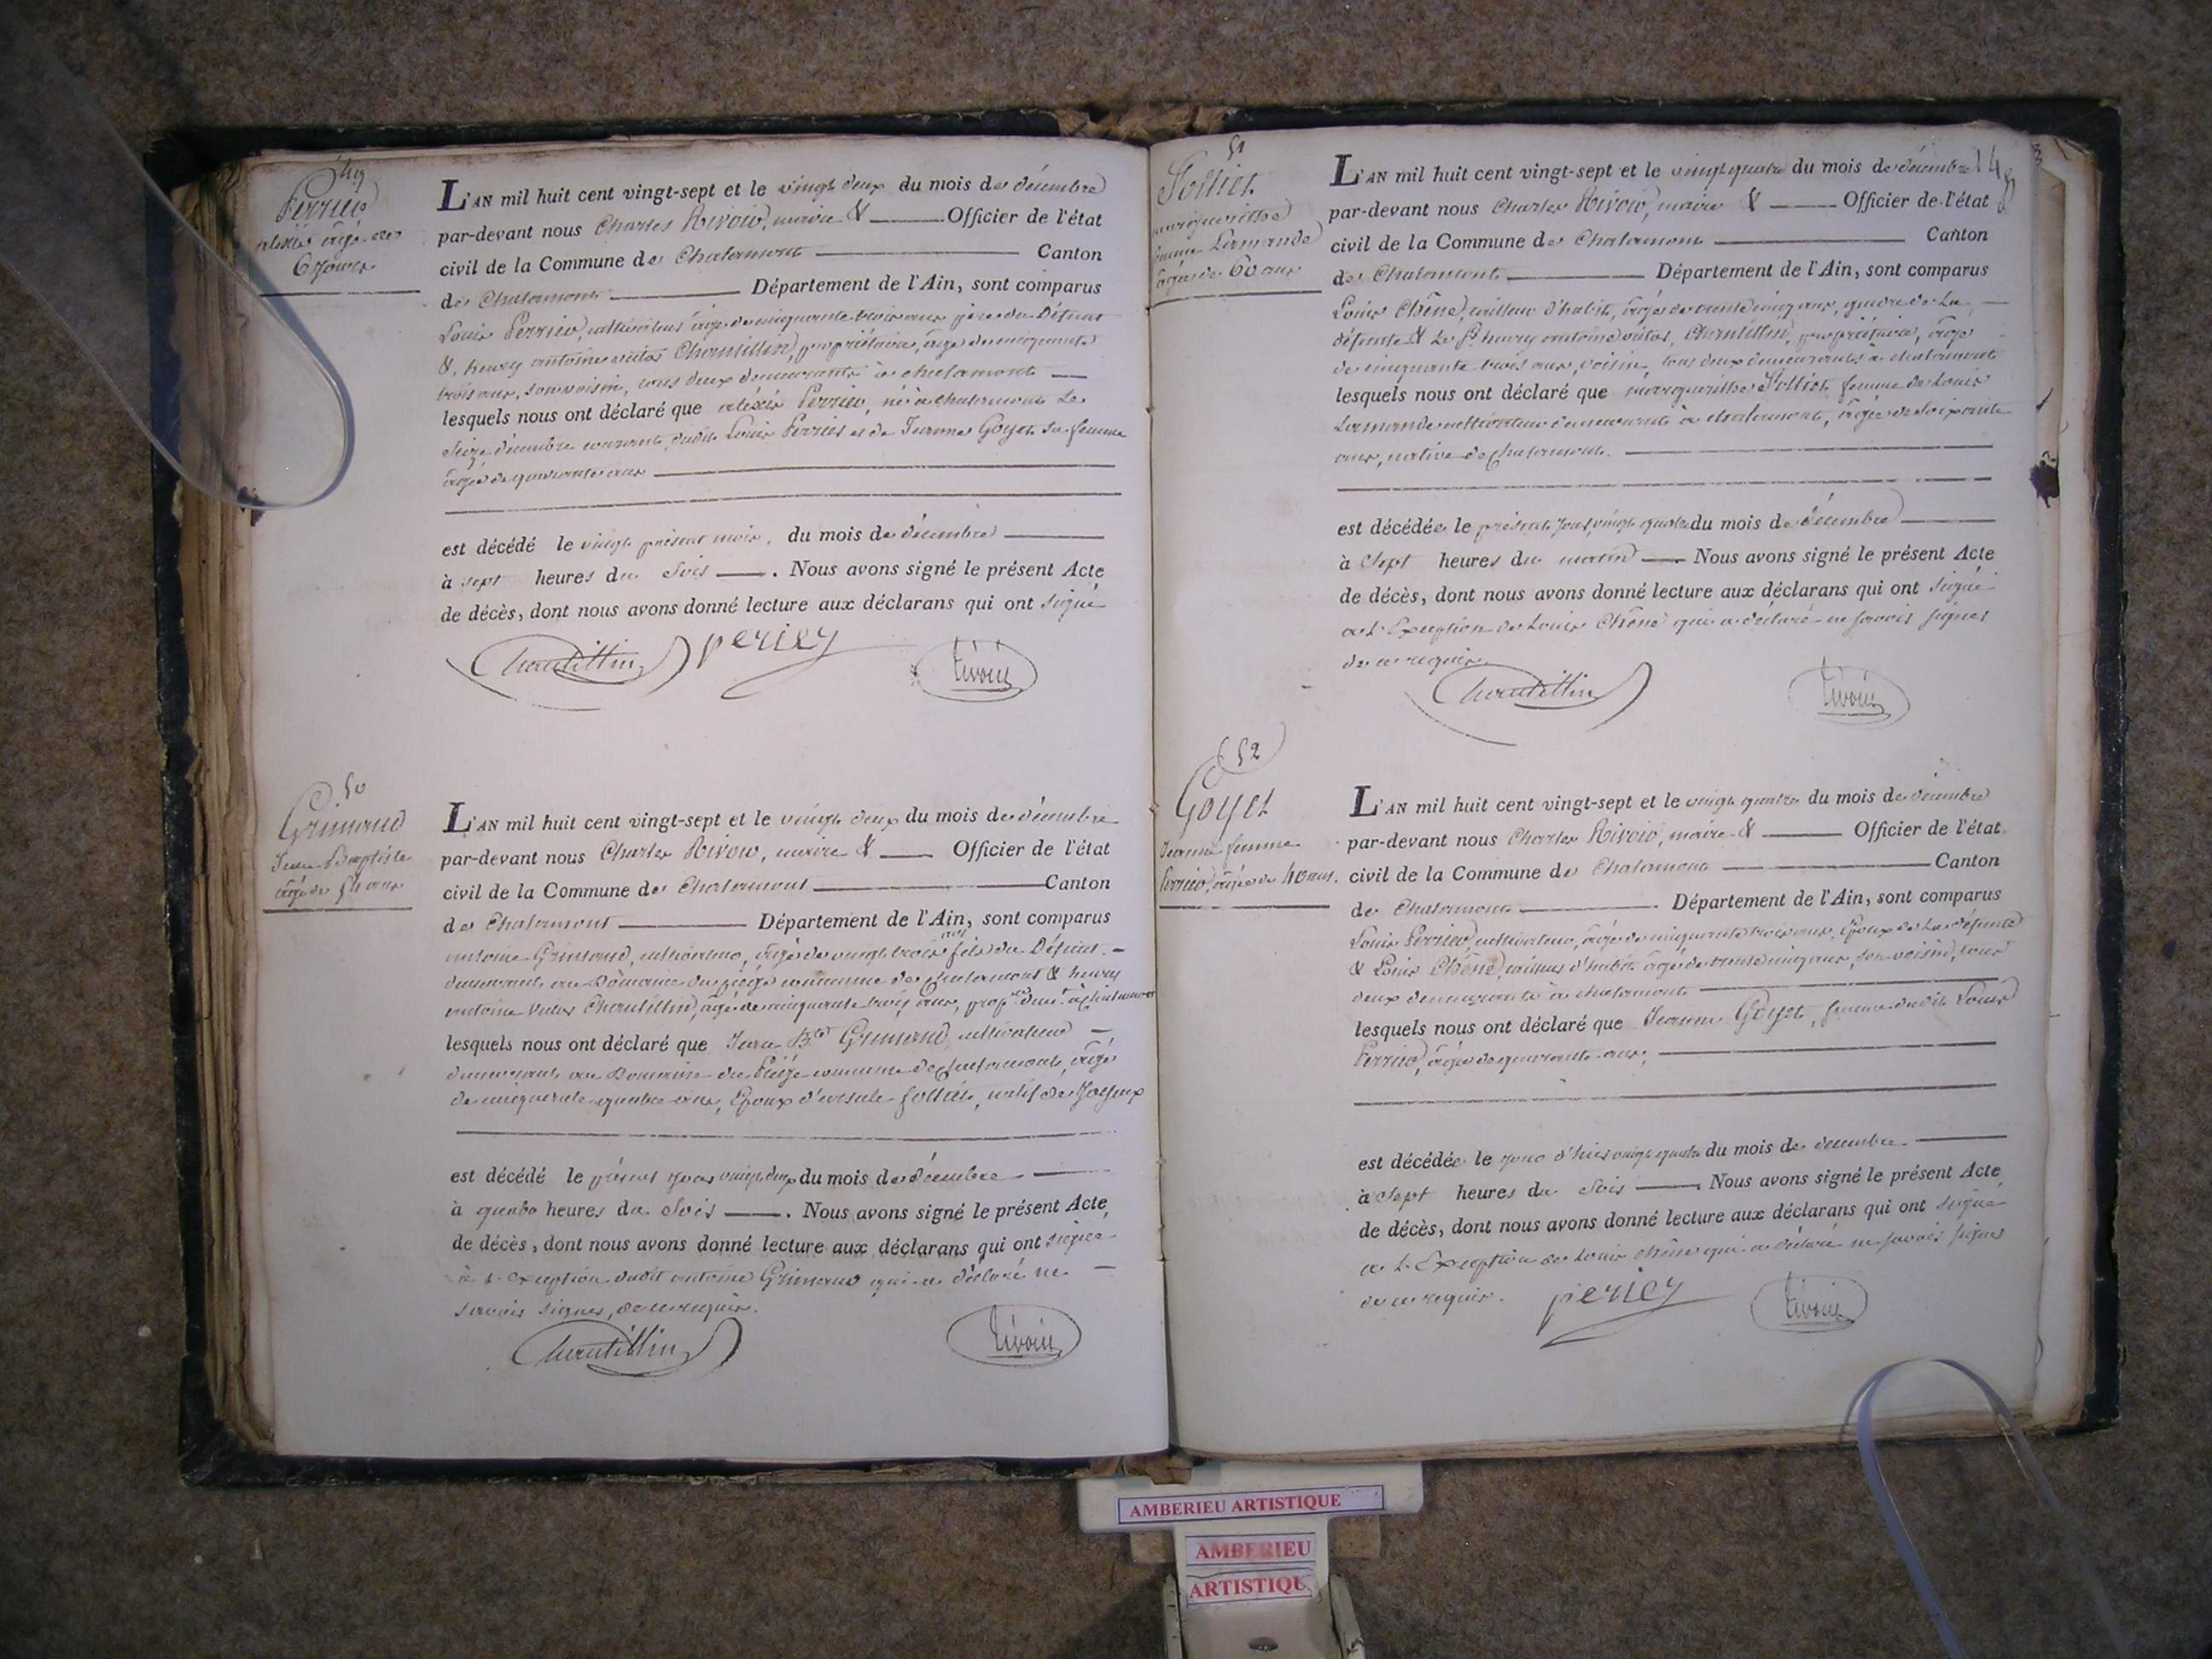 49
Perrier
alexis âgé de
6 Jours
L'AN mil huit cent vingt-sept et le vingt deux du mois de décembre
par-devant nous Charles Rivoir, maire & Officier de l'état
civil de la Commune de Chalamont Canton
de Chalamont Département de l'Ain, sont comparus
Louis Perrier, cultivateur âgé de cinquante trois ans père du Défunt
&. henry antoine victor Chantillin, propriétaire, âgé de cinquante
trois ans, son voisin, tous deux demeurants à chalamont
lesquels nous ont déclaré que alexis Perrier, né à chalamont le
seize décembre courant, dudit Louis Perrier et de Jeanne Goyet sa femme
âgée de quarante ans
est décédé le vingt présent mois, du mois de décembre
à sept heures du soir . Nous avons signé le présent Acte
de décès, dont nous avons donné lecture aux déclarans qui ont signé
Chantillin periey Rivoir
50
Grimaud
Jean Baptiste
âgé de 54 ans
L'AN mil huit cent vingt-sept et le vingt deux du mois de décembre
par-devant nous Charles Rivoir, maire & Officier de l'état
civil de la Commune de Chalamont Canton
de Chalamont Département de l'Ain, sont comparus
antoine Grimaud, cultivateur, âgé de vingt trois ans fils du Défunt
demeurant au Domaine du piége commune de chalamont & henry
antoine victor Chantillin, âgé de cinquante trois ans, prop.re dem.t à chalamont
lesquels nous ont déclaré que Jean B.te Grimaud, cultivateur
demeurant au Domaine du Piége commune de chalamont, âgé
de cinquante quatre ans, Epoux d'ursule follict, natif de Joyeux
est décédé le présent jour vingt deux du mois de décembre
à quatre heures du soir . Nous avons signé le présent Acte
de décès, dont nous avons donné lecture aux déclarans qui ont signé
à l'exception dudit antoine Grimaud qui a déclaré ne
savoir signer, de ce requis.
Chantillin Rivoir
51
marguerithe
femme Lamande
âgée de 60 ans
L'AN mil huit cent vingt-sept et le vingt quatre du mois de décembre 148
par-devant nous Charles Rivoir, maire & Officier de l'état
civil de la Commune de Chalamont Canton
de Chalamont Département de l'Ain, sont comparus
Louis Chêne, tailleur d'habits, âgé de trente cinq ans, gendre de la
défunte & le S.r henry antoine victor, Chantillin, propriétaire, âgé
de cinquante trois ans, voisin, tous deux demeurants à chalamont
lesquels nous ont déclaré que marguerithe femme de Louis
Lamande cultivateur demeurant à chalamont, âgée de soixante
ans, native de chalamont.
est décédée le présent jour, vingt quatre du mois de décembre
à sept heures du matin . Nous avons signé le présent Acte
de décès, dont nous avons donné lecture aux déclarans qui ont signé
a l'Exception de Louis Chêne qui a déclaré ne savoir signer
de ce requis.
Chantillin Rivoir
52
Goyet
Jeanne femme
Perrier, âgée de 40 ans.
L'AN mil huit cent vingt-sept et le vingt quatre du mois de décembre
par-devant nous Charles Rivoir, maire & Officier de l'état
civil de la Commune de Chalamont Canton
de Chalamont . Département de l'Ain, sont comparus
Louis Perrier, cultivateur, âgé de cinquante trois ans, Epoux de la défunte
& Louis Chêne, tailleur d'habits âgé de trente cinq ans, son voisin, tous
deux demeurants à chalamont
lesquels nous ont déclaré que Jeanne Goyet, femme dudit Louis
Perrier, âgée de quarante ans,
est décédée le jour d'hier vingt quatre du mois de décembre
à Sept heures du soir . Nous avons signé le présent Acte
de décès, dont nous avons donné lecture aux déclarans qui ont signé
a l'Exception de Louis chêne qui a déclaré ne savoir signer
de ce requis. periey Rivoir
AMBERIEU ARTISTIQUE
AMBERIEU
ARTISTIQU